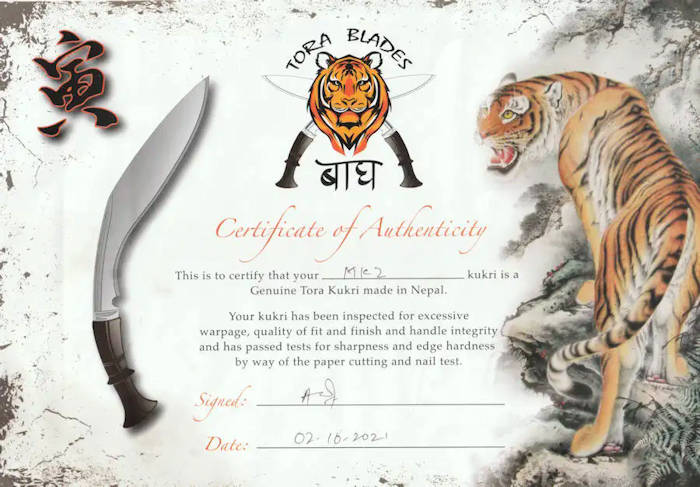 寅
TORA BLADES
बाघ
Certificate of Authenticity
This is to certify that your MK2 kukri is a
Genuine Tora Kukri made in Nepal.
Your kukri has been inspected for excessive
warpage, quality of fit and finish and handle integrity
and has passed tests for sharpness and edge hardness
by way of the paper cutting and nail test.
Signed:
Date: 02-10-2021